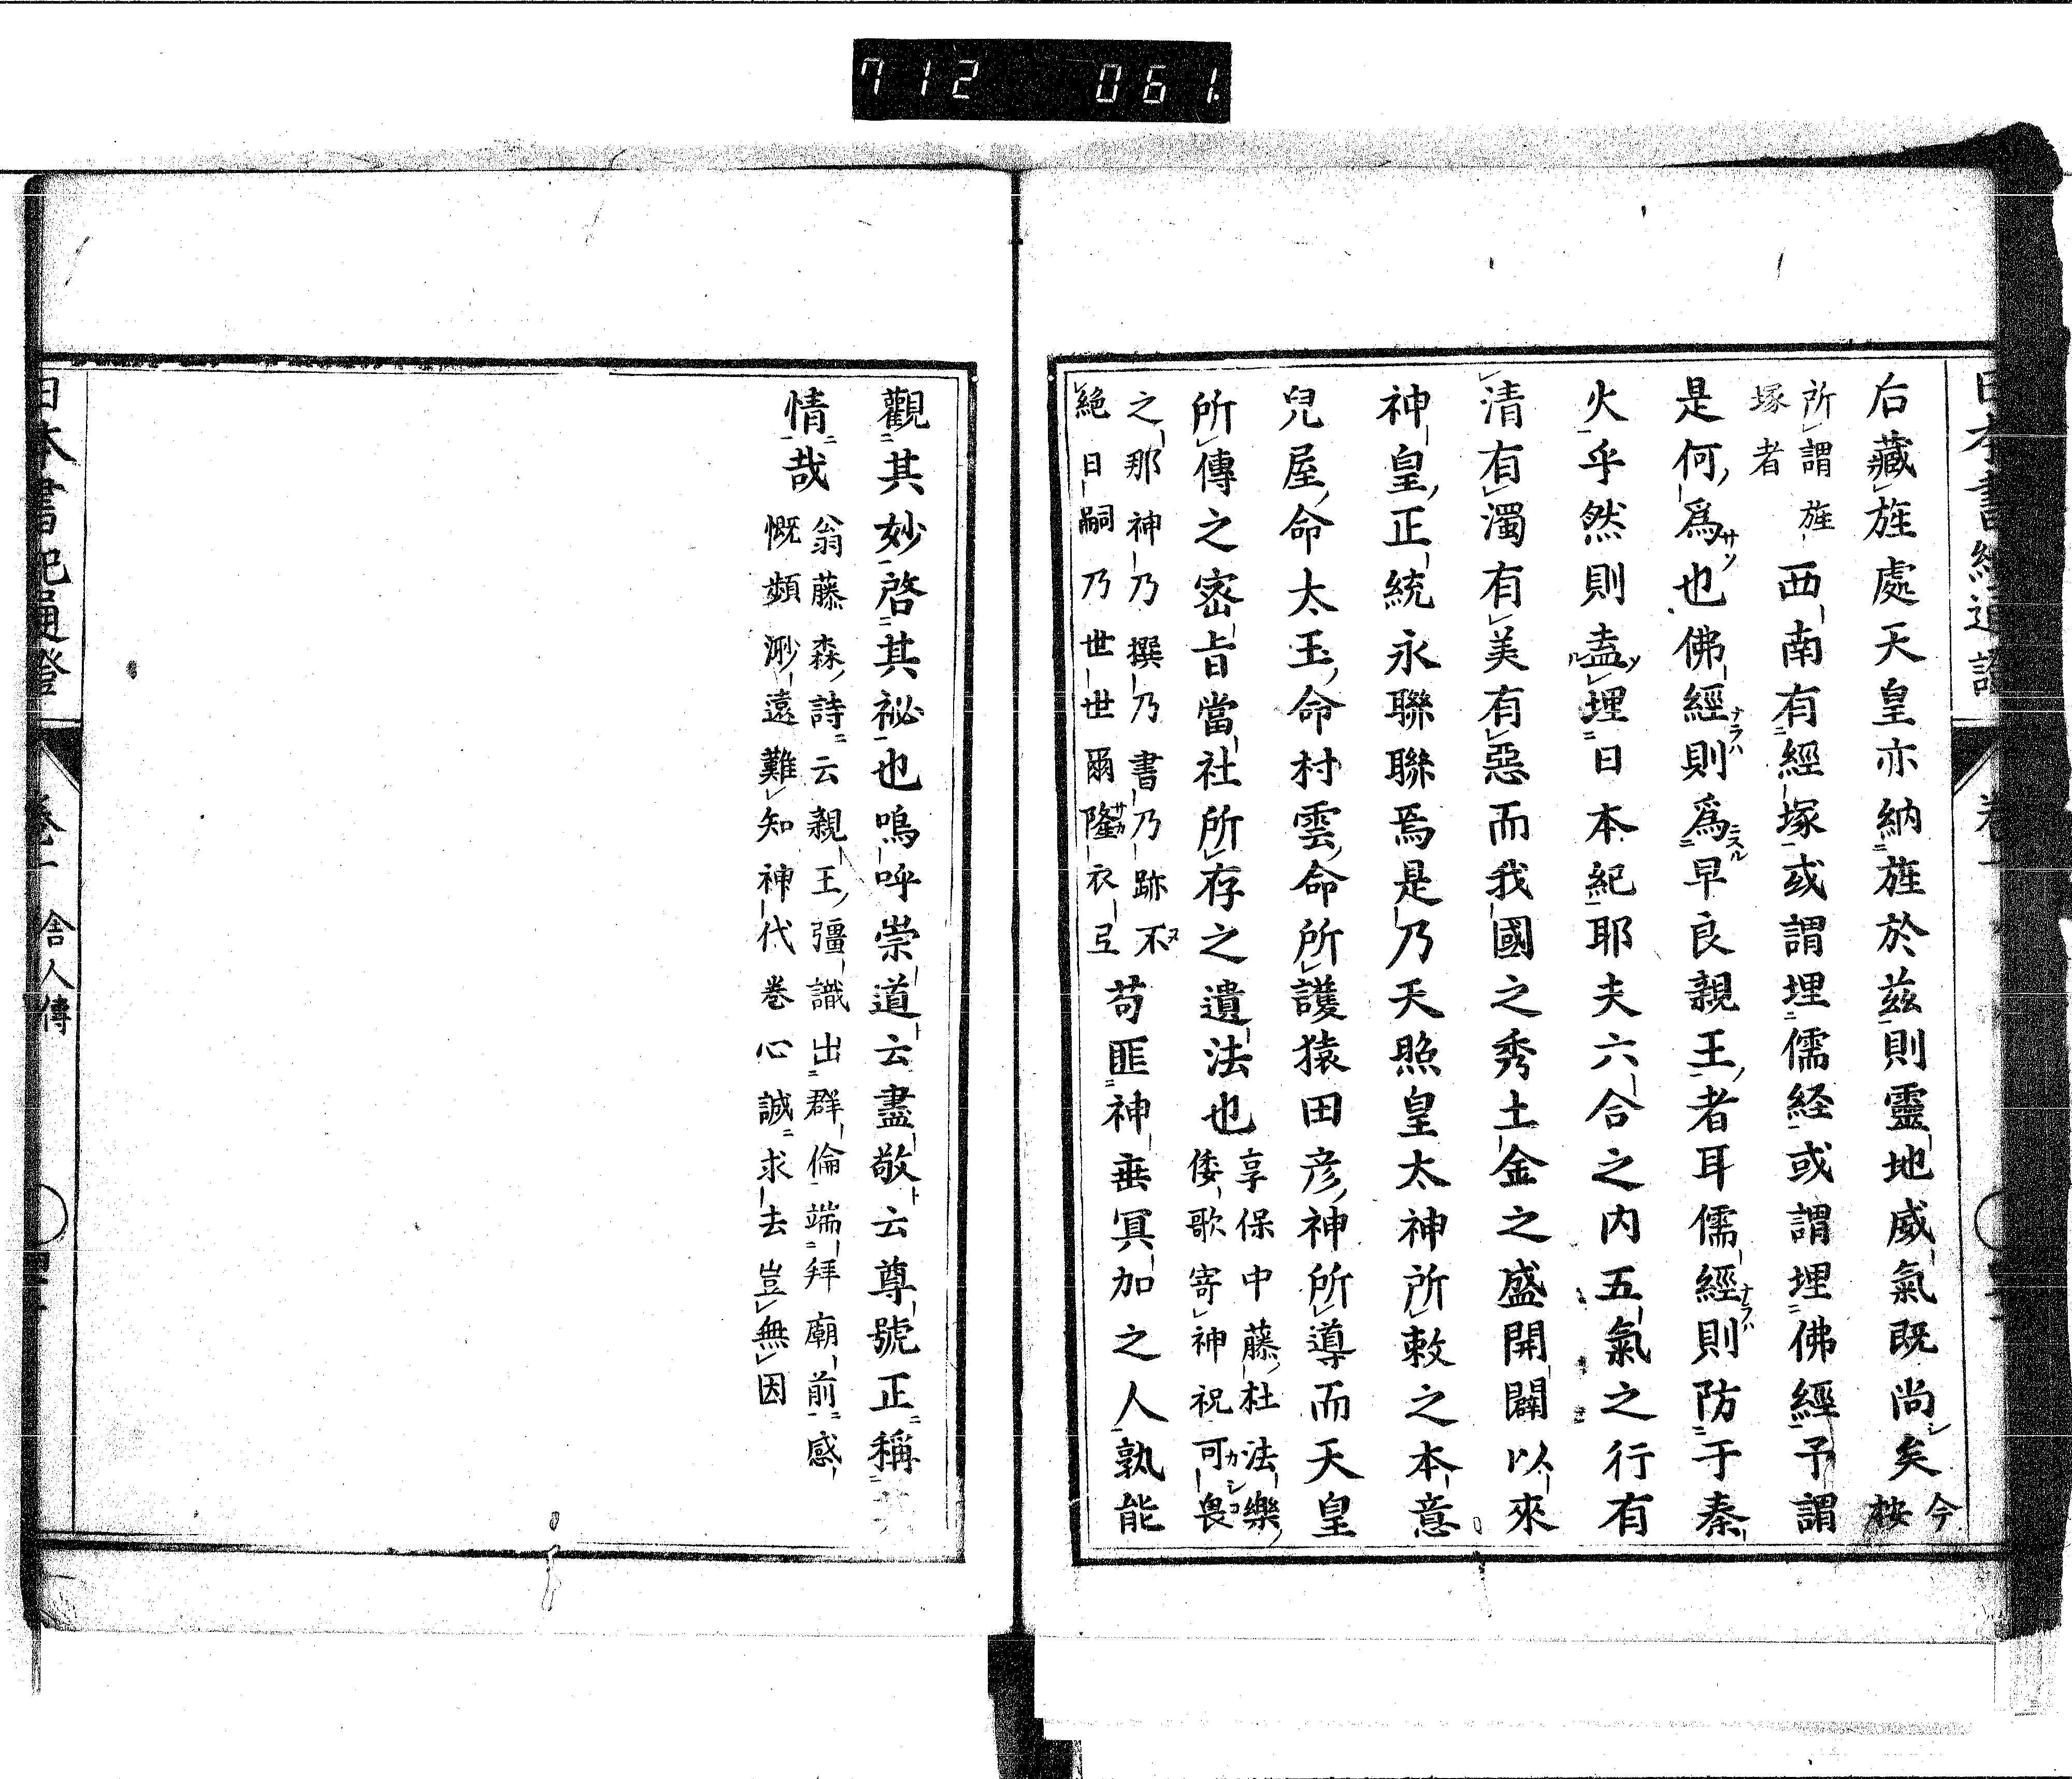 712 061
右藏旌處天皇亦納旌於茲則靈地威氣既尚矣今按
所謂旌塚者西南有經塚或謂埋儒経或謂埋佛經予謂
是何爲也佛經則爲早良親王者耳儒經則防于秦
火乎然則盍埋日本紀耶夫六合之内五氣之行有
清有濁有美有惡而我國之秀土金之盛開闢以來
神皇正統永聯聯焉是乃天照皇太神所敕之本意
兒屋命太玉命村雲命所護猿田彦神所導而天皇
所傳之密旨當社所存之遺法也享保中藤杜法樂倭歌寄神祝可畏
之那神乃撰乃書乃跡不絕日嗣乃世世爾隆衣弖苟匪神垂冥加之人孰能
觀其妙啓其祕也嗚呼崇道云盡敬云尊號正稱
情哉翁藤森詩云親王彊識出群倫端拜廟前感慨頻渺遠難知神代巻心誠求去豈無因
日本書紀通證 卷一 舍人傳